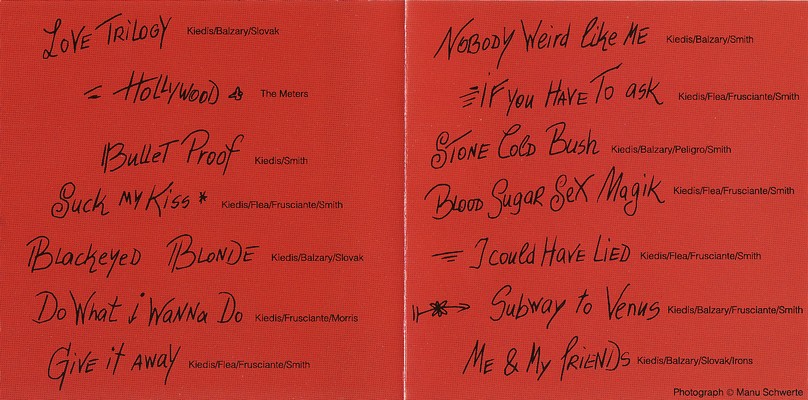 Love Trilogy Kiedis/Balzary/Slovak
Hollywood The Meters
Bullet Proof Kiedis/Smith
Suck my Kiss * Kiedis/Flea/Frusciante/Smith
Blackeyed Blonde Kiedis/Balzary/Slovak
Do What i Wanna Do Kiedis/Frusciante/Morris
Give it away Kiedis/Flea/Frusciante/Smith
Nobody Weird like Me Kiedis/Balzary/Smith
If you Have To ask Kiedis/Flea/Frusciante/Smith
Stone Cold Bush Kiedis/Balzary/Peligro/Smith
Blood Sugar Sex Magik Kiedis/Flea/Frusciante/Smith
I could Have Lied Kiedis/Flea/Frusciante/Smith
Subway to Venus Kiedis/Balzary/Frusciante/Smith
Me & My friends Kiedis/Balzary/Slovak/Irons
Photograph © Manu Schwerte